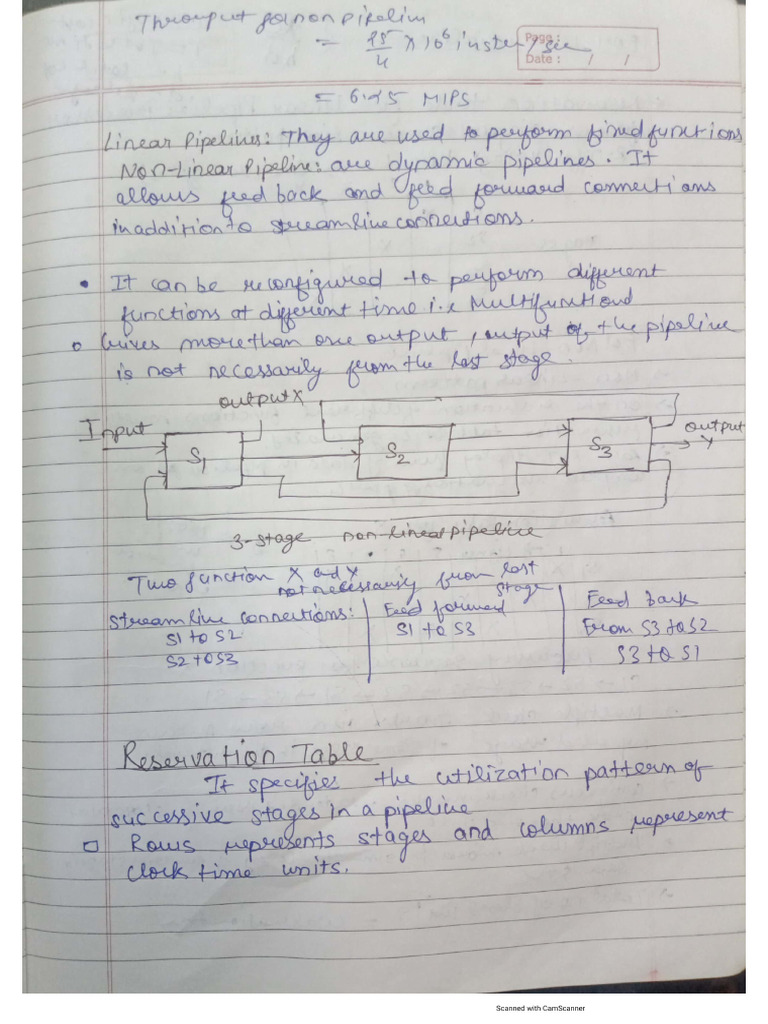 Throuput for non pipelin
= 25/4 × 10⁶ inster/sec
Page :
Date : / /
= 6.25 MIPS
Linear Pipelines: They are used to perform fixed functions
Non-Linear Pipeline: are dynamic pipelines. It
allows feed back and feed forward connections
in addition to streamline connections.
• It can be reconfigured to perform different
functions at different time i.e Multifunctional
o Gives more than one output, output of the pipeline
is not necessarily from the last stage.
output X
Input
S1
S2
S3
output Y
3-stage non-linear pipeline
Two function X and Y
not necessarily from last stage
Streamline connections:
S1 to S2
S2 to S3
Feed forward
S1 to S3
Feed back
From S3 to S2
S3 to S1
Reservation Table
It specifies the utilization pattern of
successive stages in a pipeline
□ Rows represents stages and columns represent
clock time units.
Scanned with CamScanner